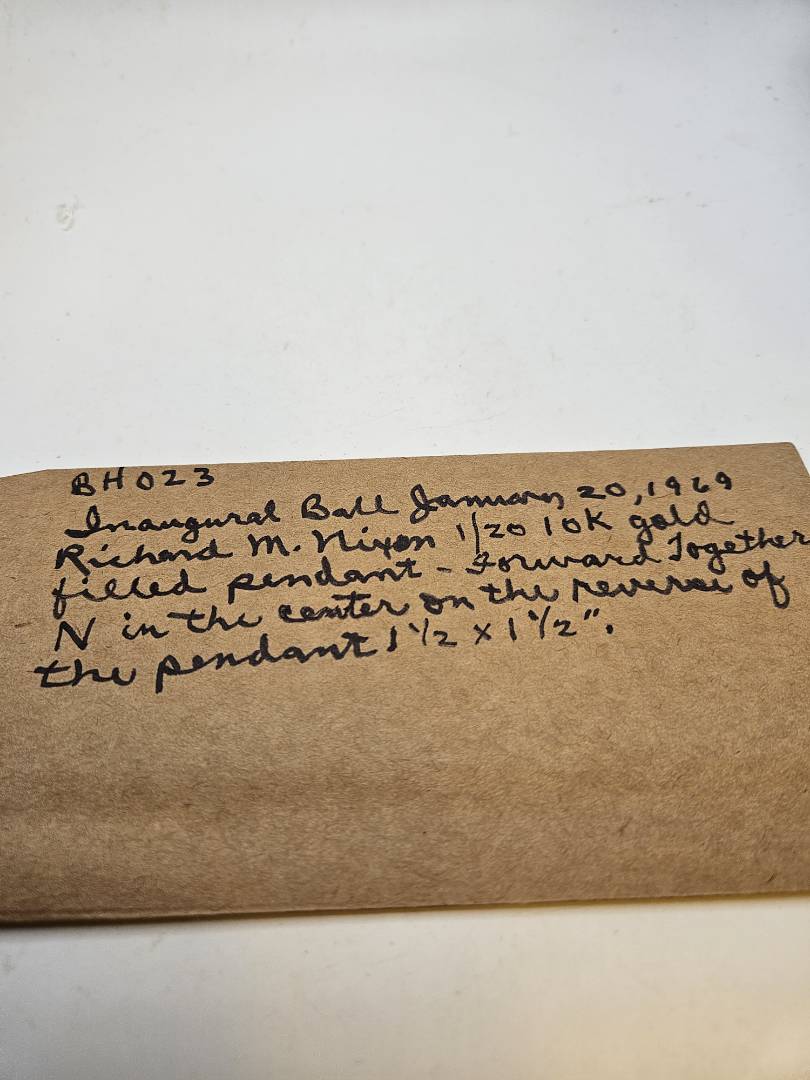 BH023
Inaugural Ball January 20, 1969
Richard M. Nixon 1/20 10K gold
filled pendant - Forward Together
N in the center on the reverse of
the pendant 1 1/2 x 1 1/2".